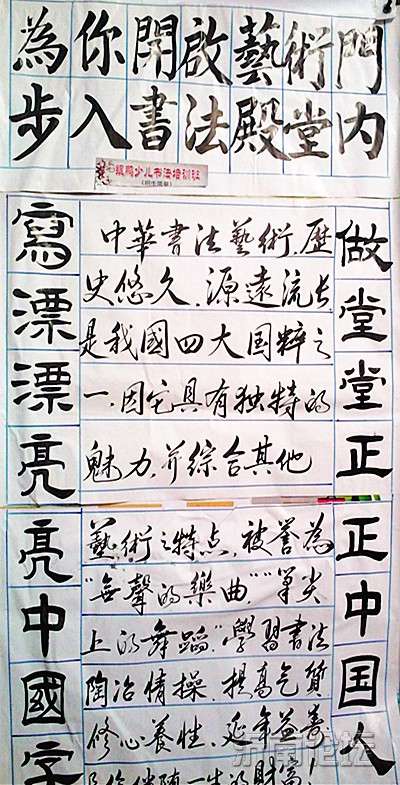 為你開啟藝術門
步入書法殿堂内
少儿书法培训班
(招生简章)
做堂堂正正中国人
寫漂漂亮亮中國字
中華書法藝術,歷
史悠久,源遠流长,
是我國四大国粹之
一,因它具有独特的
魅力,并綜合其他
藝術之特点,被誉為
"無聲的樂曲,""筆尖
上的舞蹈."學習書法
陶冶情操,提高气質
修心養性,延年益壽
伴随一生的財富!
济南论坛